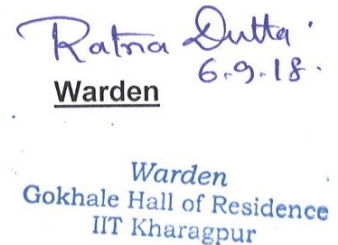 Ratna Dutta
6.9.18.
Warden
Warden
Gokhale Hall of Residence
IIT Kharagpur